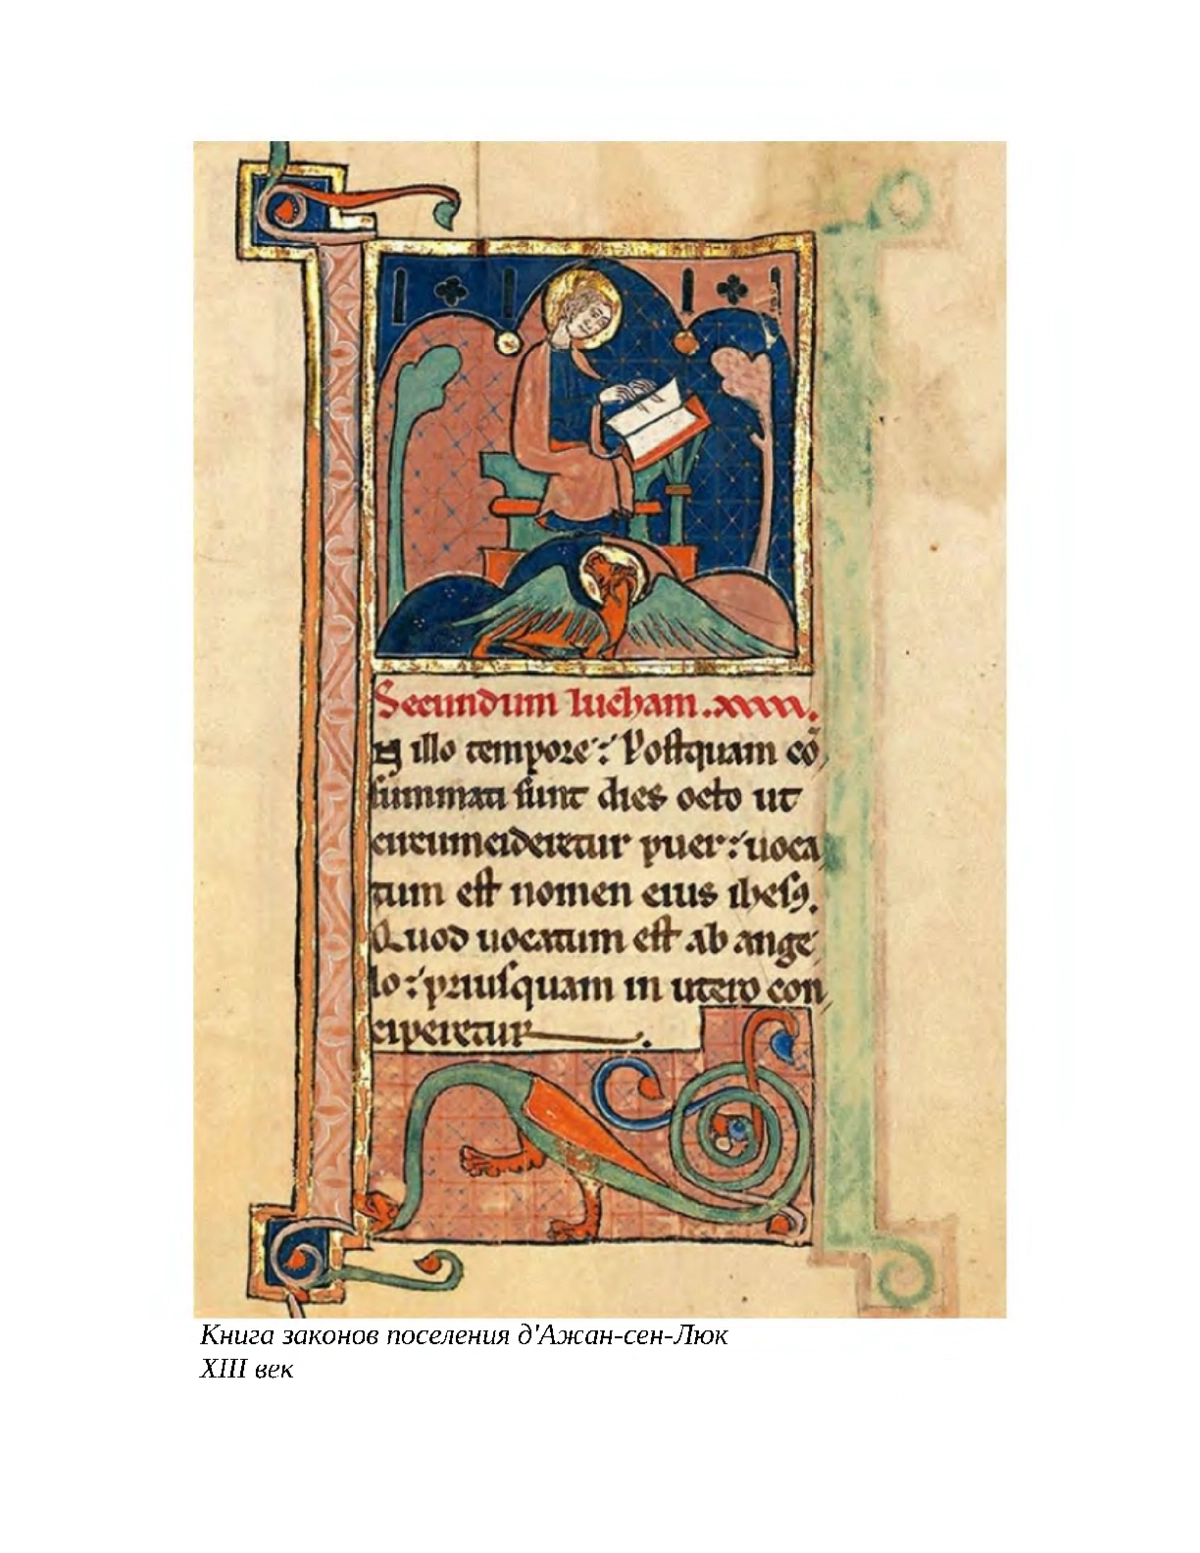 Secundum lucham .xxiiii.
N illo tempore : Postquam cō
summati sunt dies octo ut
circumcideretur puer : uoca
tum est nomen eius ihesꝰ.
Quod uocatum est ab ange
lo : priusquam in utero con
ciperetur .
Книга законов поселения д'Ажан-сен-Люк
XIII век